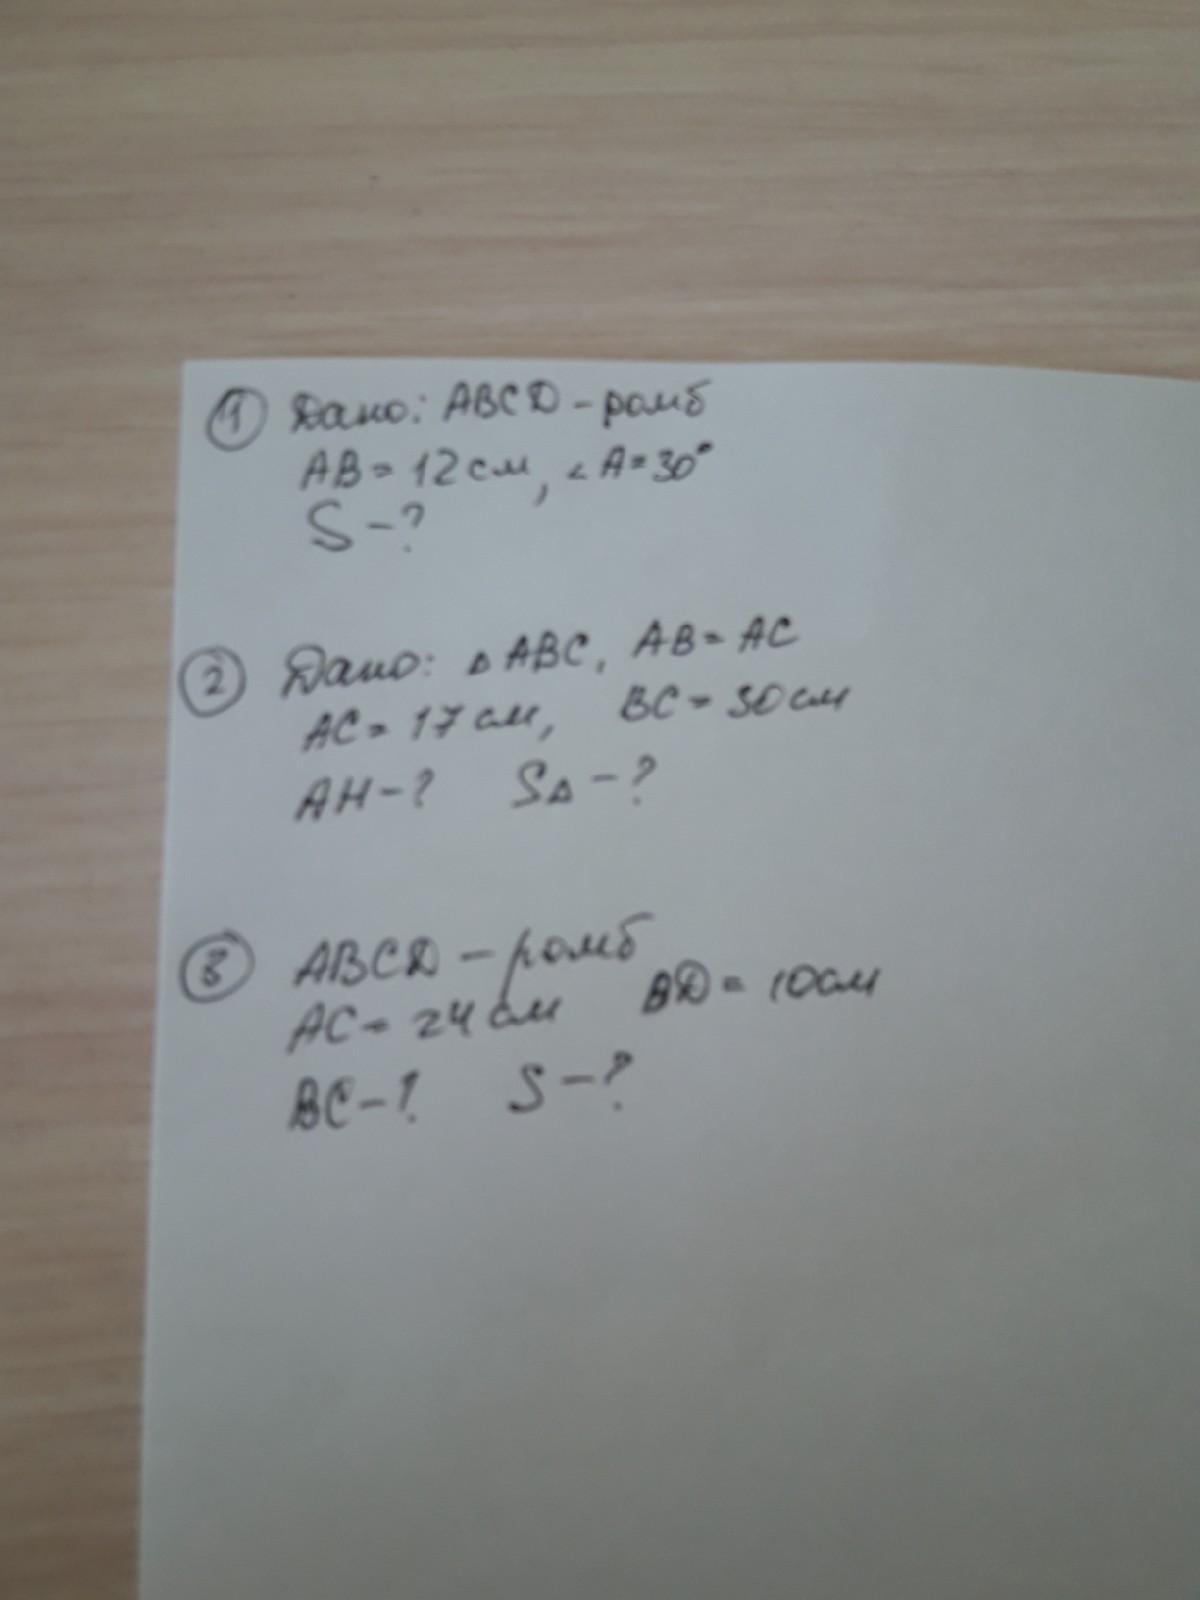 ① Дано: ABCD - ромб
AB = 12 см, ∠A = 30°
S - ?
② Дано: △ABC, AB = AC
AC = 17 см, BC = 30 см
AH - ? S△ - ?
③ ABCD - ромб
AC = 24 см BD = 10 см
BC - ? S - ?